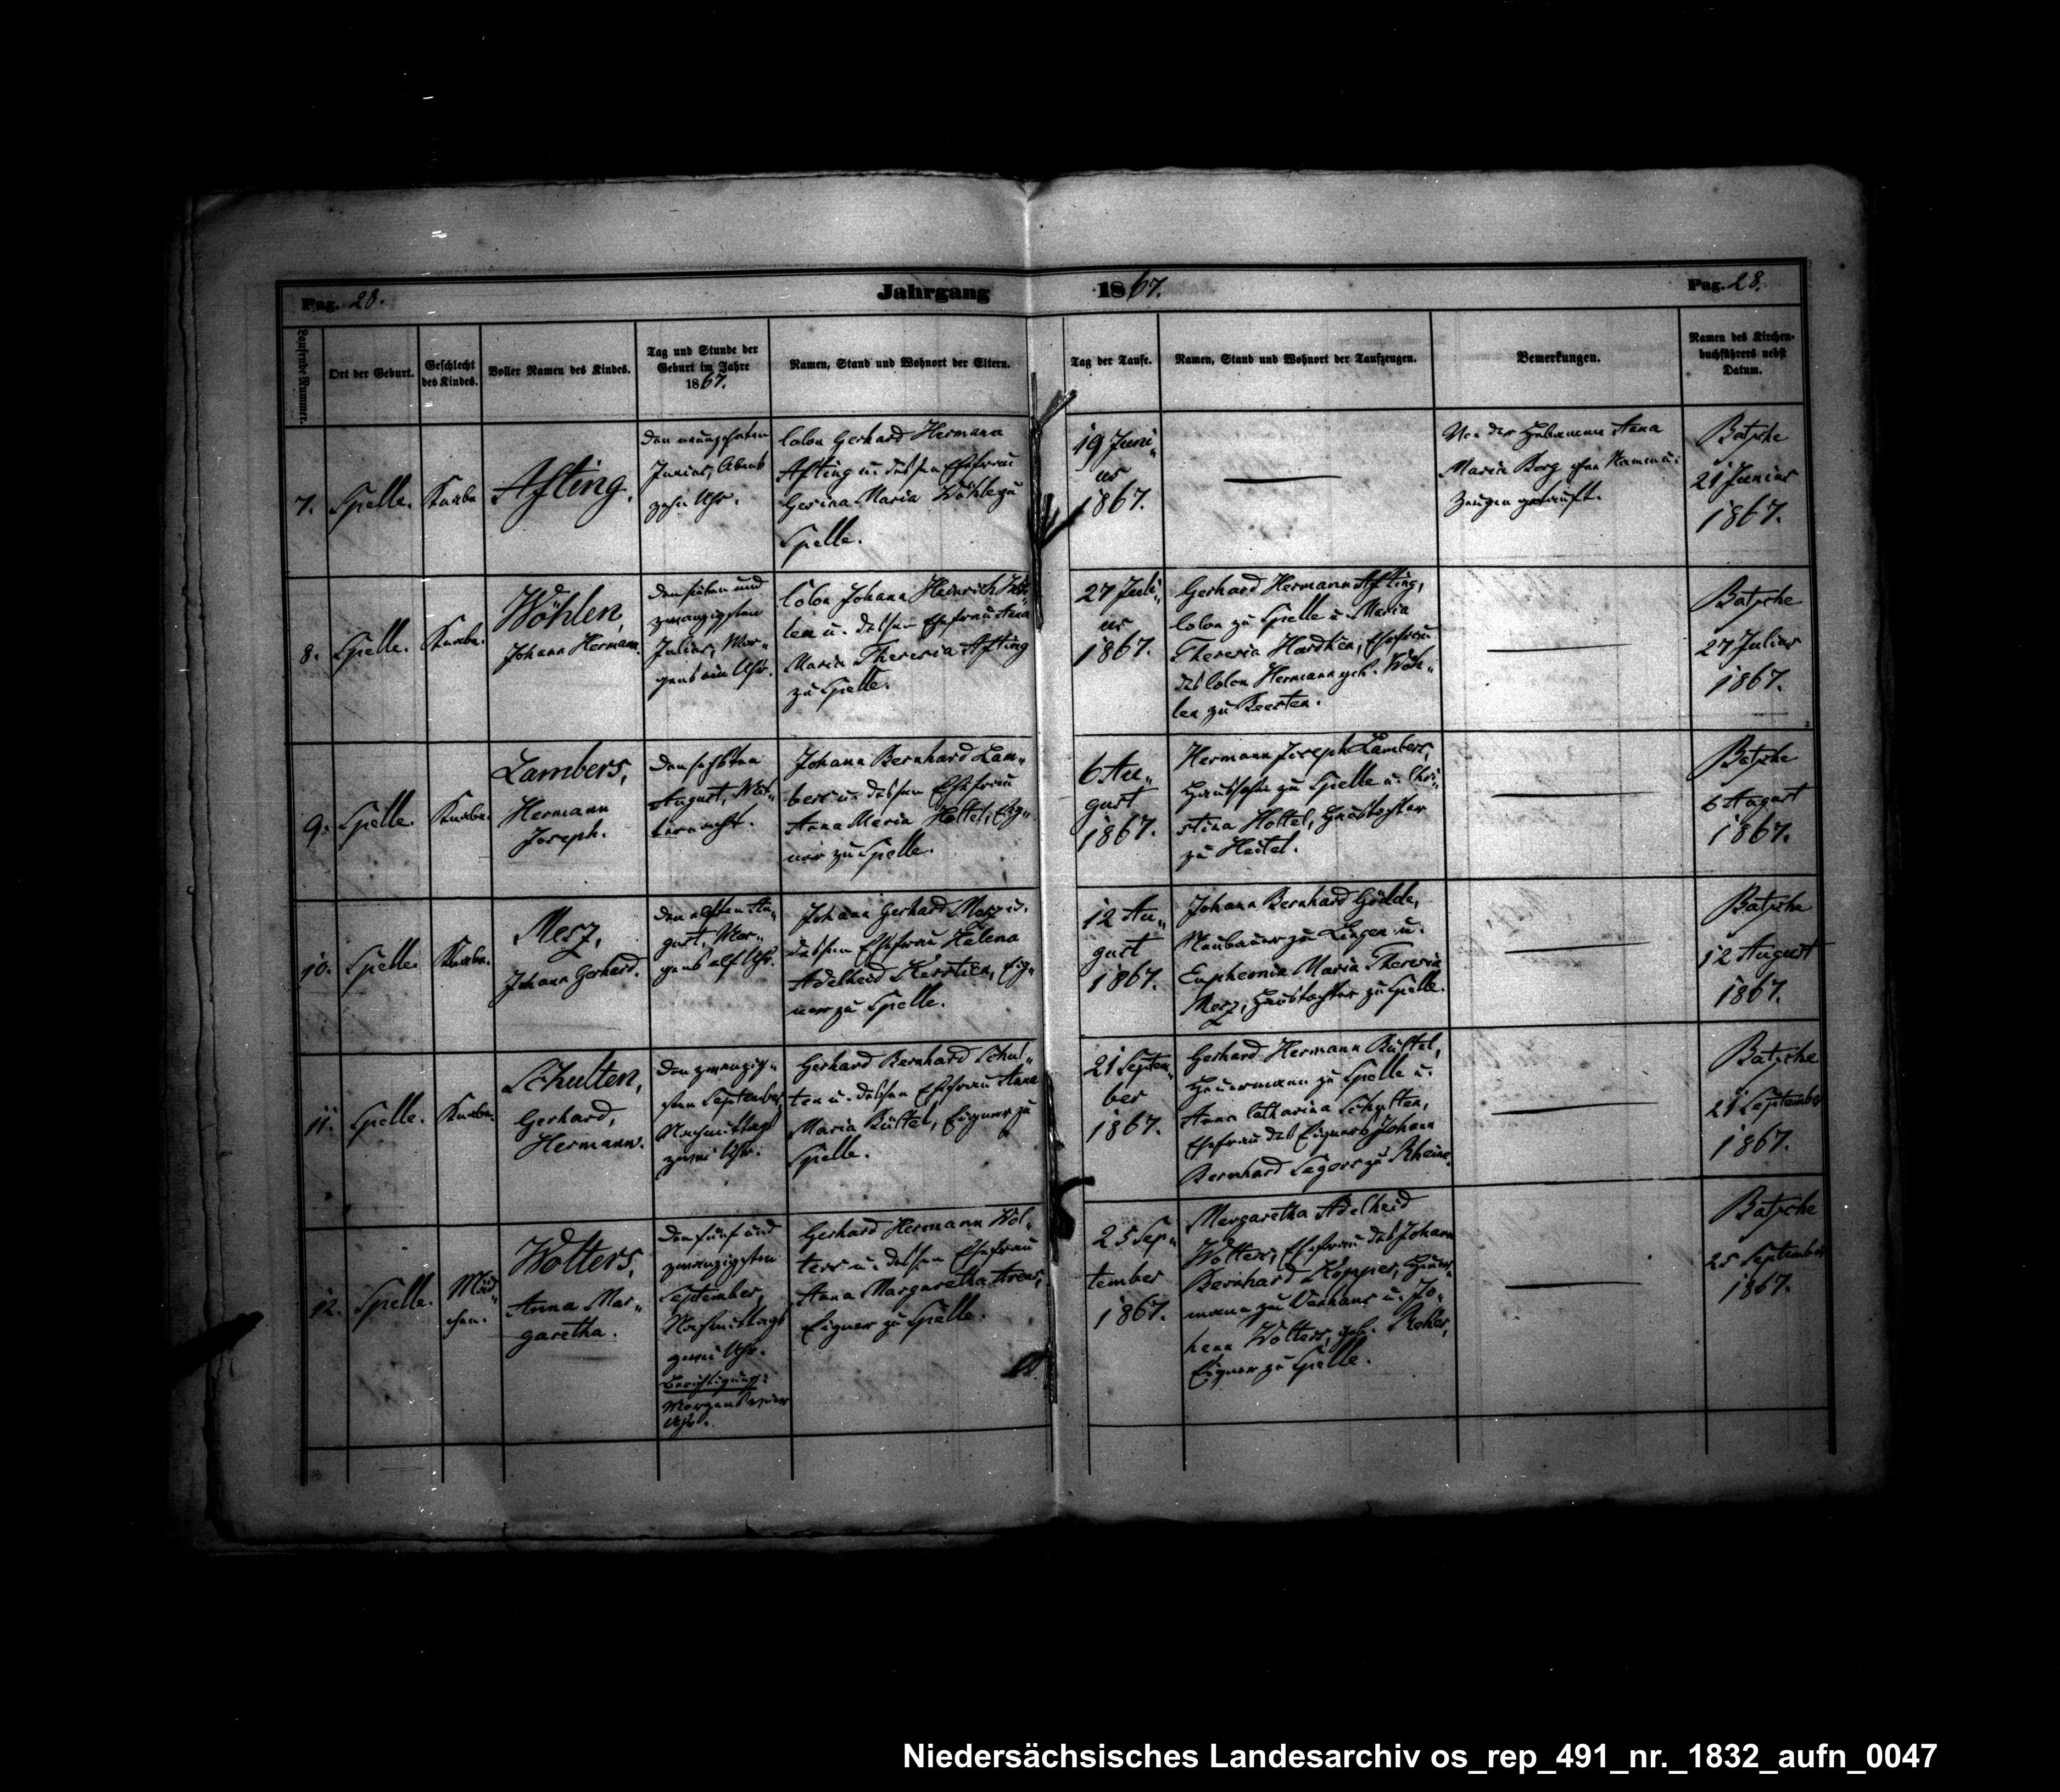 Pag. 28.
Jahrgang 1867.
Pag. 28.
Laufende Nummer.
Ort der Geburt.
Geschlecht
des Kindes.
Voller Namen des Kindes.
Tag und Stunde der
Geburt im Jahre
1867.
Namen, Stand und Wohnort der Eltern.
Tag der Taufe.
Namen, Stand und Wohnort der Taufzeugen.
Bemerkungen.
Namen des Kirchen-
buchführers nebst
Datum.
7.
Spelle.
Knabe
Afting.
Den neunzehnten
Junius, Abends
zehn Uhr.
Colon Gerhard Hermann
Afting u. dessen Ehefrau
Gesina Maria Wöhle zu
Spelle.
19 Juni„
us
1867.
Von der Hebamme Anna
Maria Borg ohne Namen u:
Zeugen getauft.
Batsche
21 Junius
1867.
8.
Spelle.
Knabe.
Wöhlen,
Johann Hermann.
Den sieben und
zwanzigsten
Julius, Mor„
gens ein Uhr.
Colon Johann Heinrich Wöh„
len u. dessen Ehefrau Anna
Maria Theresia Afting
zu Spelle.
27 Juli„
us
1867.
Gerhard Hermann Afting,
Colon zu Spelle u. Maria
Theresia Ehefrau
des Colon Hermann geb. Wöh„
len zu Beesten.
Batsche
27 Julius
1867.
9.
Spelle.
Knabe.
Lambers,
Hermann
Joseph.
Den sechsten
August, Mit„
ternacht.
Johann Bernhard Lam„
bers u. dessen Ehefrau
Anna Maria Höltel, Eig„
ner zu Spelle.
6 Au„
gust
1867.
Hermann Joseph Lambers,
Haussohn zu Spelle u. Chri„
stina Höltel, Haustochter
zu Heitel.
Batsche
6 August
1867.
10.
Spelle.
Knabe.
Merz,
Johann Gerhard.
Den elften Au„
gust, Mor„
gens elf Uhr.
Johann Gerhard Merz u.
dessen Ehefrau Helena
Adelheid Kersten, Eig„
ner zu Spelle.
12 Au„
gust
1867.
Johann Bernhard Gödde,
Neubauer zu Lingen u.
Euphemia Maria Theresia
Merz, Haustochter zu Spelle.
Batsche
12 August
1867.
11.
Spelle.
Knabe.
Schulten,
Gerhard,
Hermann.
Den zwanzig„
sten September
Nachmittags
zwei Uhr.
Gerhard Bernhard Schul„
ten u. dessen Ehefrau Anna
Maria Rüstel, Eigner zu
Spelle.
21 Septem„
ber
1867.
Gerhard Hermann Rüstel,
Heuermann zu Spelle u.
Anna Catharina Schulten,
Ehefrau des Eigners Johann
Bernhard Segers zu Rheine.
Batsche
21 September
1867.
12.
Spelle.
Mäd„
chen.
Wolters,
Anna Mar„
garetha.
Den fünf und
zwanzigsten
September,
Nachmittags
zwei Uhr.
Berichtigung:
Morgens
Uhr.
Gerhard Hermann Wol„
ters u. dessen Ehefrau
Anna Margaretha
Eigner zu Spelle.
25 Sep„
tember
1867.
Margaretha Adelheid
Wolters, Ehefrau des Johann
Bernhard Kopper, Heuer„
mann zu Varhaus u. Jo„
hann Wolters, geb.
Eigner zu Spelle.
Batsche
25 September
1867.
Niedersächsisches Landesarchiv os_rep_491_nr._1832_aufn_0047